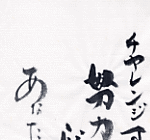 チャレンジ
努力
あなた